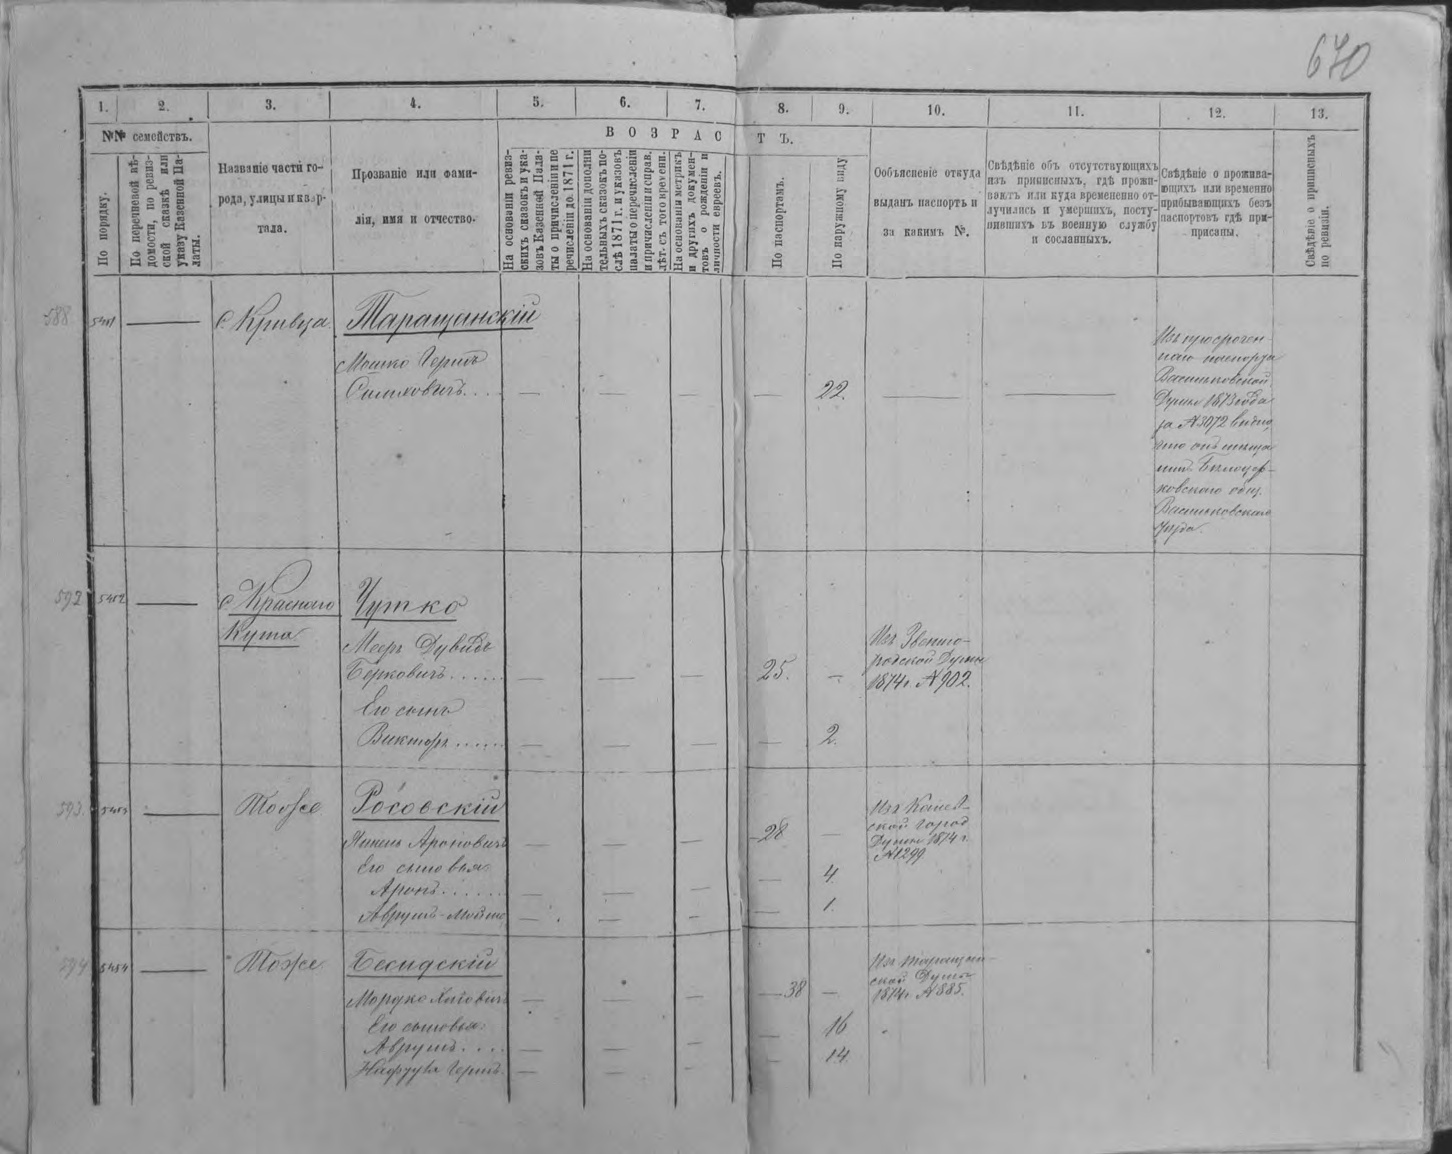 670
1.
2.
3.
4.
5.
6.
7.
8.
9.
10.
11.
12.
13.
№№ семействъ.
В О З Р А С Т Ъ.
По порядку.
По перечневой вѣ-
домости, по ревиз-
ской сказкѣ или
указу Казенной Па-
латы.
Названіе части го-
рода, улицы и квар-
тала.
Прозваніе или фами-
лія, имя и отчество.
На основаніи ревиз-
скихъ сказокъ и ука-
зовъ Казенной Пала-
ты о причисленіи и пе
речисленіи до 1871 г.
На основаніи дополни
тельныхъ сказокъ по-
слѣ 1871 г. и указовъ
палаты о перечисленіи
и причисленіи и справ.
лѣт. съ того времени.
На основаніи метрикъ
и другихъ докумен-
товъ о рожденіи и
личности евреевъ.
По паспортамъ.
По наружному виду
Объясненіе откуда
выданъ паспортъ и
за какимъ №.
Свѣдѣніе объ отсутствующихъ
изъ приписныхъ, гдѣ прожи-
ваютъ или куда временно от-
лучились и умершихъ, посту-
пившихъ въ военную службу
и сосланныхъ.
Свѣдѣніе о прожива-
ющихъ или временно
прибывающихъ безъ
паспортовъ гдѣ при-
писаны.
Свѣдѣніе о приписныхъ
по ревизіи.
588
5451 — с Кривца Таращанскій
Мошко Герш
— — — — 22. — —
Изъ просрочен-
наго паспорта
Васильковской
Думы 1873 года
за №3072 видно,
что онъ мѣща
нинъ Бѣлоцер-
ковскаго общ.
Васильковскаго
уѣзда.
592
5452 — с Краснаго Чутко
Кута
Мееръ Дувидъ
Берковичъ . . . . . — — — 25. —
Изъ Звениго-
родской Думы
1874 г. №902.
Его сынъ
Викторъ . . . . . — — — — 2.
593
5453 — Тоже Росовскій
Ароновичъ — — — 28 —
Изъ
ской Город
Думы 1874 г.
№1299
Его сыновья
Аронъ . . . . . — — — — 4.
Аврумъ-Мошко — — — — 1.
594
5454 — Тоже Бесидскій
Мордко — — — 38 —
Изъ Таращан-
ской Думы
1874 г. №885.
Его сыновья
Аврумъ . . . . — — — — 16
Нафтула Гершъ — — — — 14.